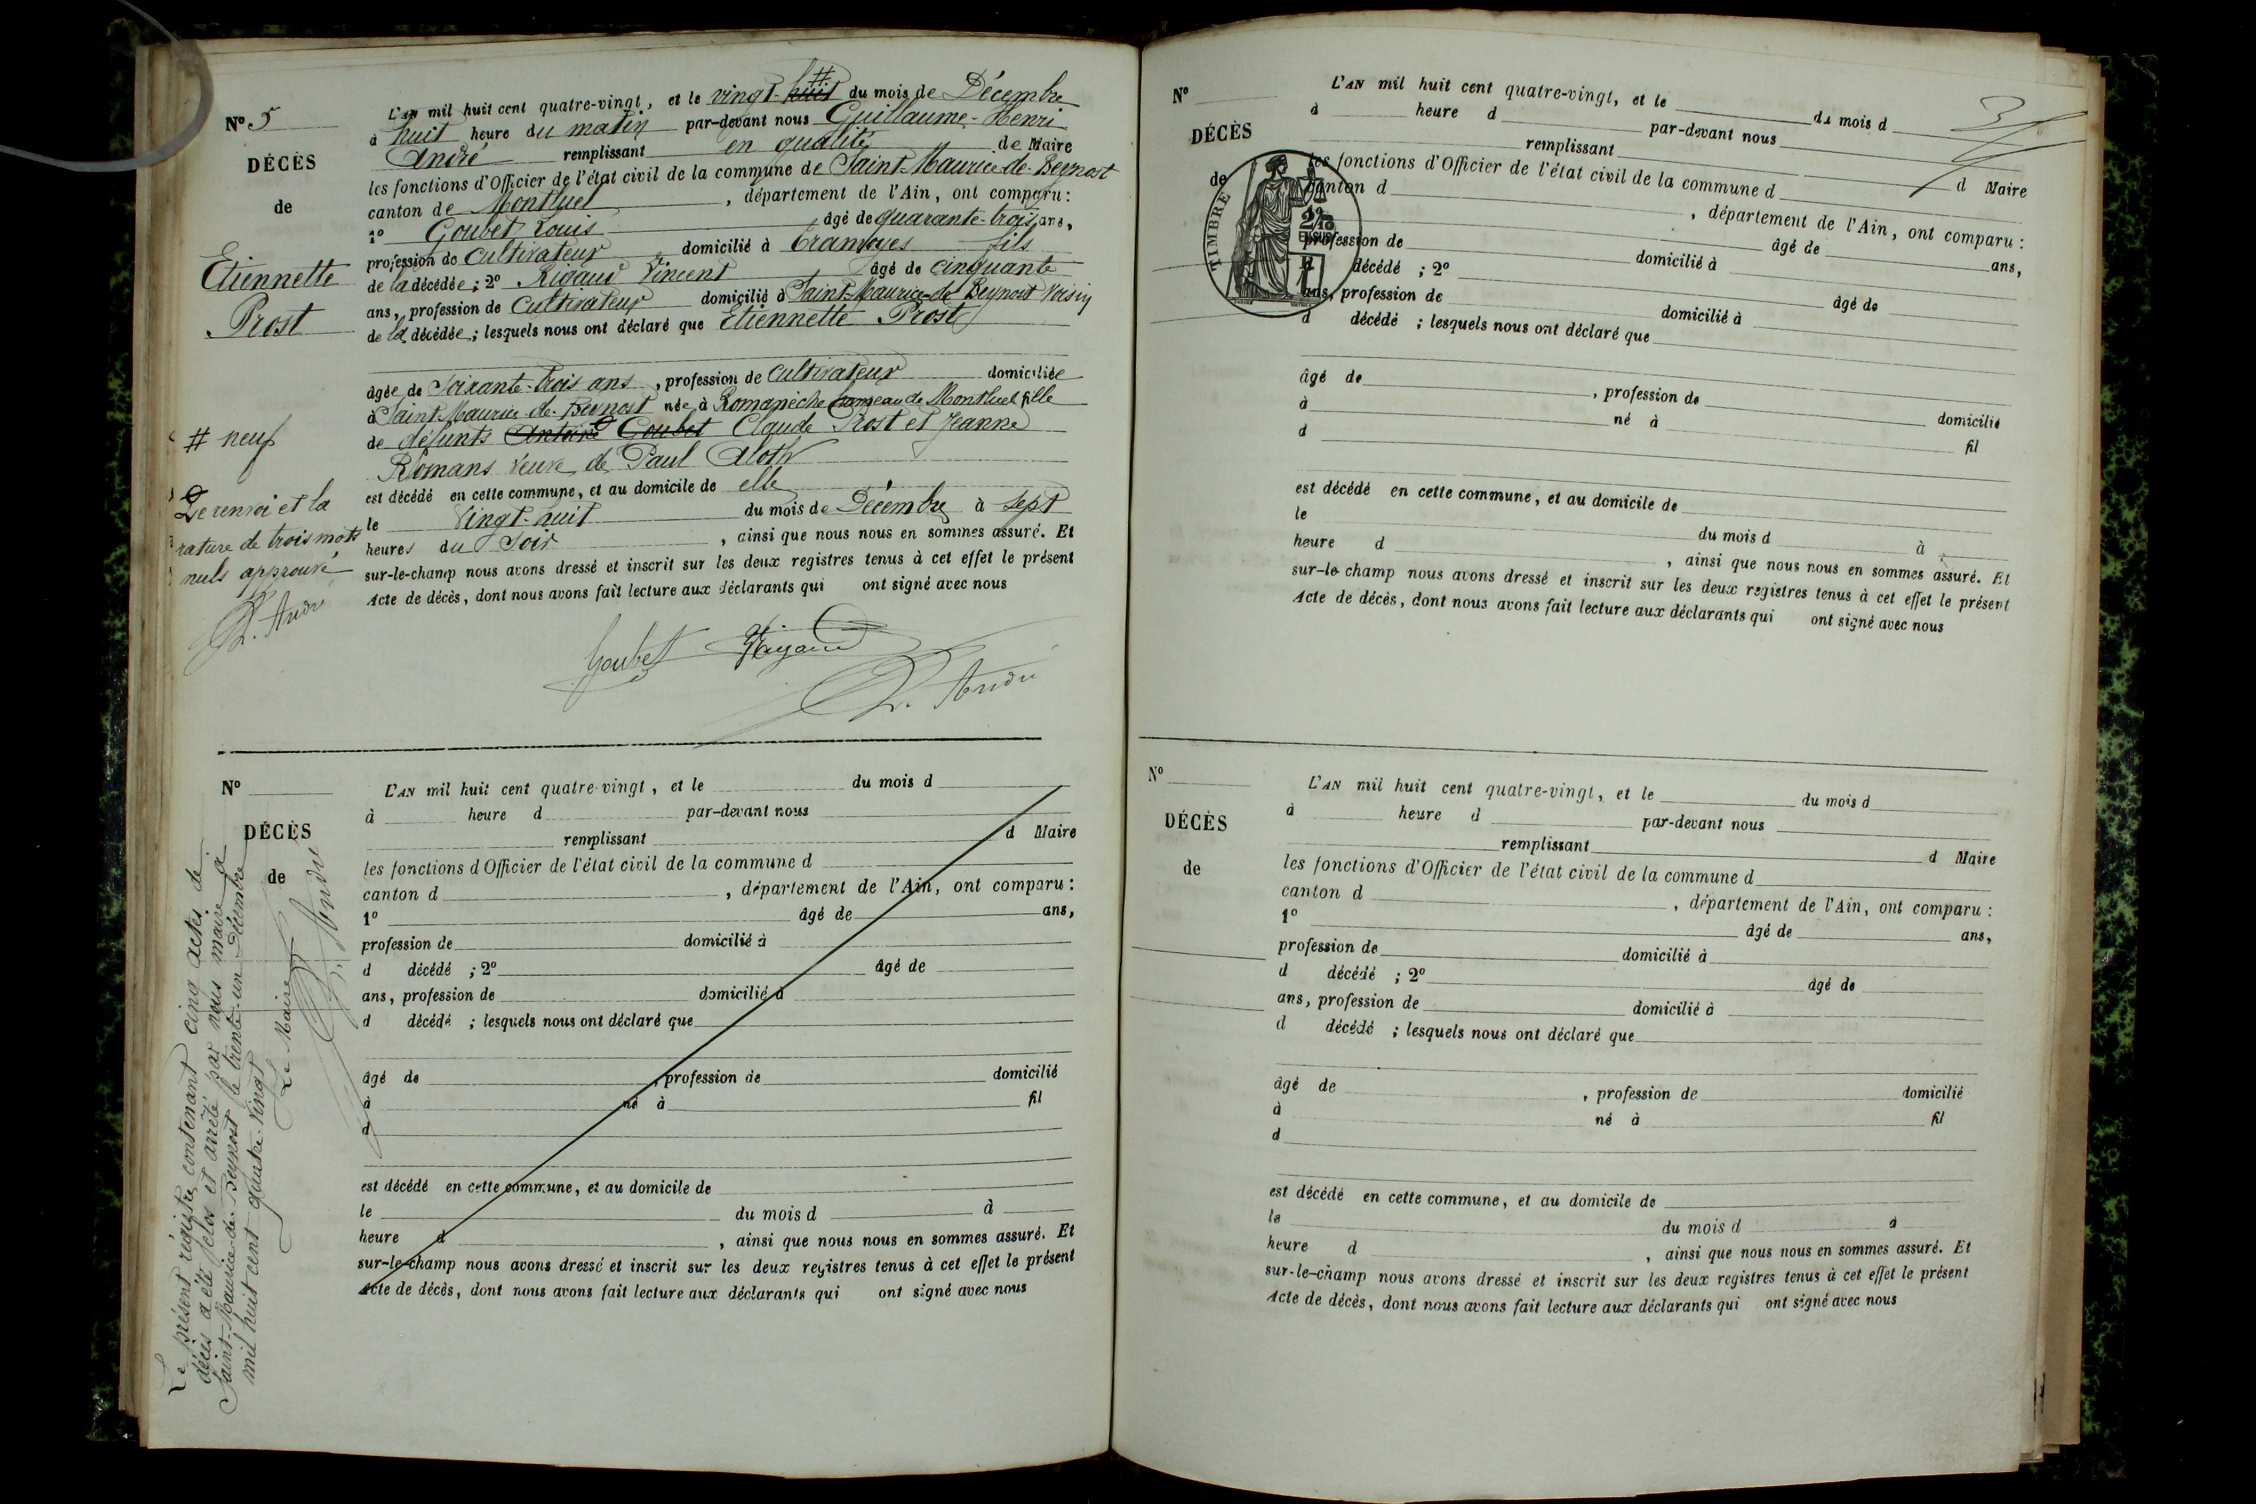 N° 5
DÉCÈS
de
Etiennette
Prost
# neuf
Le renvoi et la
rature de trois mots
nuls approuvé
H. André
L'AN mil huit cent quatre-vingt, et le vingt-huit # du mois de Décembre
à huit heure du matin par-devant nous Guillaume-Henri
André remplissant en qualité de Maire
les fonctions d'Officier de l'état civil de la commune de Saint-Maurice-de-Beynost
canton de Montluel, département de l'Ain, ont comparu :
1° Goubet Louis âgé de quarante-trois ans,
profession de cultivateur domicilié à Tramoyes fils
de la décédée ; 2° Rigaud Vincent âgé de cinquante
ans, profession de Cultivateur domicilié à Saint-Maurice-de Beynost voisin
de la décédée ; lesquels nous ont déclaré que Etiennette Prost
âgée de Soixante-trois ans, profession de Cultivateur domiciliée
à Saint-Maurice-de-Beynost née à Romanèche hameau de Montluel fille
de défunts Antoine Goubet Claude Prost et Jeanne
Romans veuve de Paul
est décédé en cette commune, et au domicile de elle
le vingt-huit du mois de Décembre à sept
heures du Soir, ainsi que nous nous en sommes assuré. Et
sur-le-champ nous avons dressé et inscrit sur les deux registres tenus à cet effet le présent
Acte de décès, dont nous avons fait lecture aux déclarants qui ont signé avec nous
Goubet Rigaud
H. André
N°
DÉCÈS
de
L'AN mil huit cent quatre-vingt, et le du mois d
à heure d par-devant nous
remplissant d Maire
les fonctions d'Officier de l'état civil de la commune d
canton d , département de l'Ain, ont comparu :
1° âgé de ans,
profession de domicilié à
d décédé ; 2° âgé de
ans, profession de domicilié à
d décédé ; lesquels nous ont déclaré que
âgé de , profession de domicilié
à né à fil
d
est décédé en cette commune, et au domicile de
le du mois d à
heure d , ainsi que nous nous en sommes assuré. Et
sur-le-champ nous avons dressé et inscrit sur les deux registres tenus à cet effet le présent
Acte de décès, dont nous avons fait lecture aux déclarants qui ont signé avec nous
Le présent régistre contenant cinq actes de
décès a été clos et arrêté par nous maire à
Saint-Maurice-de-Beynost le trente-un Décembre
mil huit cent quatre-vingt
Le Maire
H. André
N°
DÉCÈS
de
TIMBRE
L'AN mil huit cent quatre-vingt, et le du mois d
à heure d par-devant nous
remplissant d Maire
les fonctions d'Officier de l'état civil de la commune d
canton d , département de l'Ain, ont comparu :
âgé de ans,
profession de domicilié à
décédé ; 2° âgé de
ans, profession de domicilié à
d décédé ; lesquels nous ont déclaré que
âgé de , profession de domicilié
à né à fil
d
est décédé en cette commune, et au domicile de
le du mois d à
heure d , ainsi que nous nous en sommes assuré. Et
sur-le champ nous avons dressé et inscrit sur les deux registres tenus à cet effet le présent
Acte de décès, dont nous avons fait lecture aux déclarants qui ont signé avec nous
N°
DÉCÈS
de
L'AN mil huit cent quatre-vingt, et le du mois d
à heure d par-devant nous
remplissant d Maire
les fonctions d'Officier de l'état civil de la commune d
canton d , département de l'Ain, ont comparu :
1° âgé de ans,
profession de domicilié à
d décédé ; 2° âgé de
ans, profession de domicilié à
d décédé ; lesquels nous ont déclaré que
âgé de , profession de domicilié
à né à fil
d
est décédé en cette commune, et au domicile de
le du mois d à
heure d , ainsi que nous nous en sommes assuré. Et
sur-le-champ nous avons dressé et inscrit sur les deux registres tenus à cet effet le présent
Acte de décès, dont nous avons fait lecture aux déclarants qui ont signé avec nous